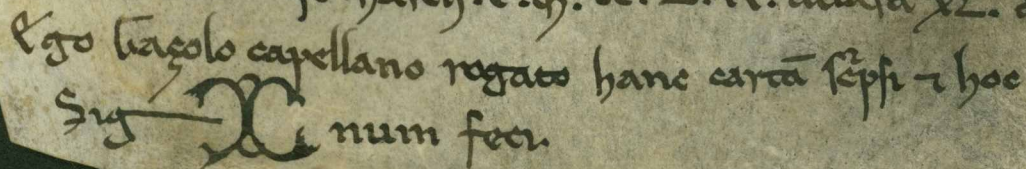 Ego baçolo capellano rogato hanc cartā sc̄psi ⁊ hoc
Sig num feci.